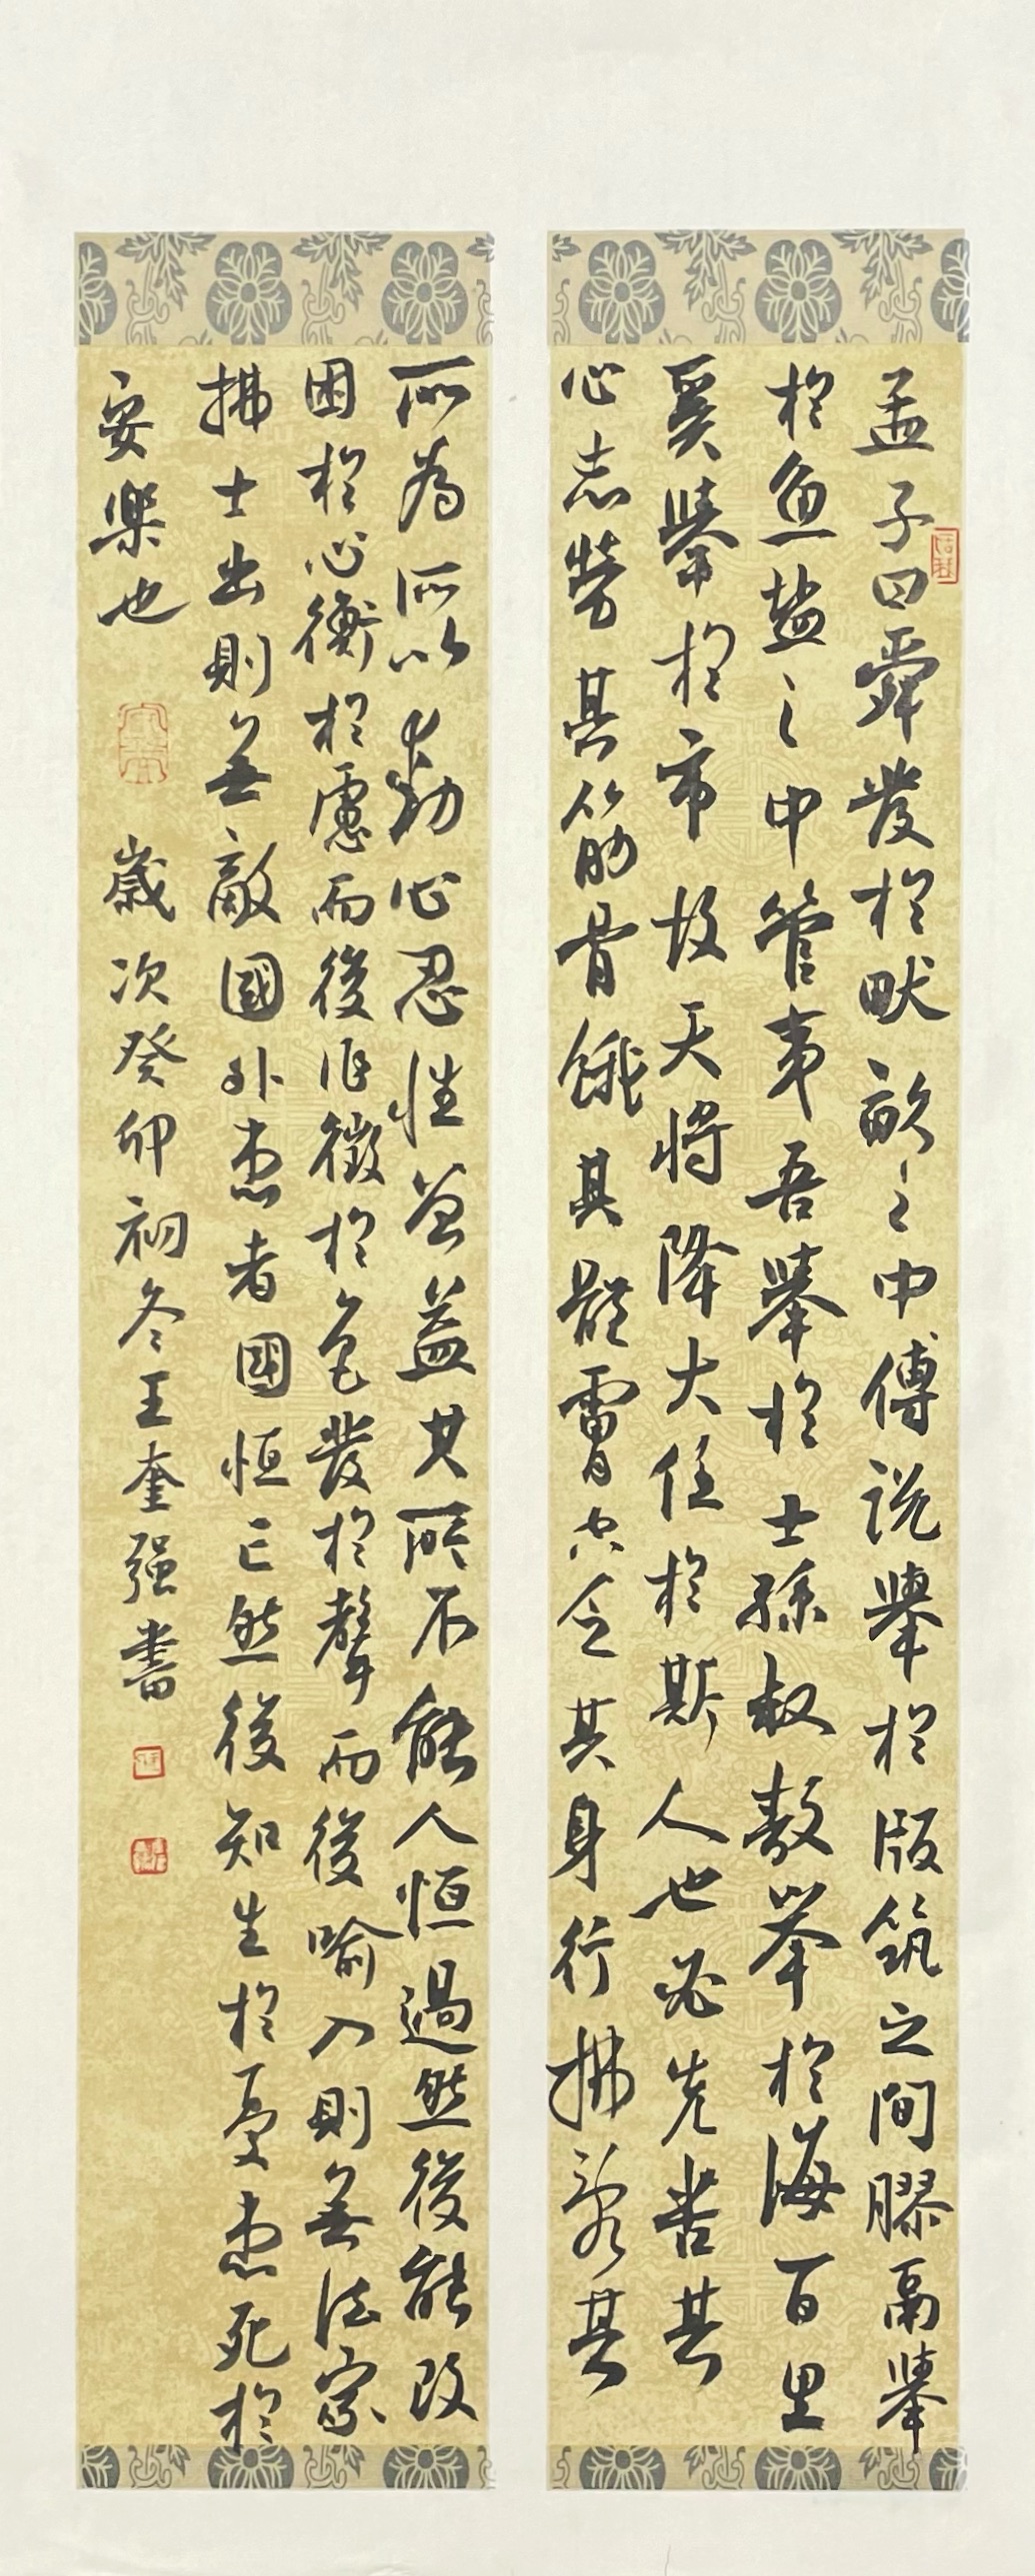 孟子曰舜發於畎畝之中傅説舉於版筑之間膠鬲舉
於魚盐之中管夷吾舉於士孫叔敖举於海百里
奚舉於市故天將降大任於斯人也必先苦其
心志勞其筋骨餓其體膚空乏其身行拂亂其
所為所以動心忍性曾益其所不能人恒過然後能改
困於心衡於慮而後作徵於色發於聲而後喻入則無法家
拂士出則無敵國外患者國恒亡然後知生於憂患死於
安樂也
歲次癸卯初冬王奎强書